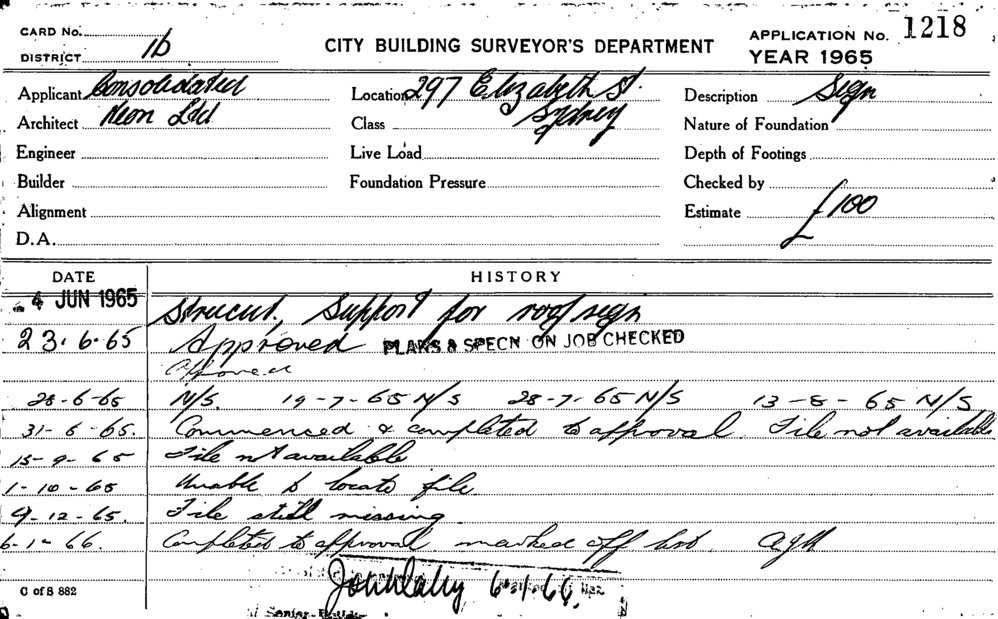 CARD No.
DISTRICT 1b
CITY BUILDING SURVEYOR'S DEPARTMENT
APPLICATION No. 1218
YEAR 1965
Applicant Consolidated
Location 297 Elizabeth St.
Description Sign
Architect Neon Ltd
Class Sydney
Nature of Foundation
Engineer
Live Load
Depth of Footings
Builder
Foundation Pressure
Checked by
Alignment
Estimate £100
D.A.
DATE HISTORY
4 JUN 1965 Strucut, Support for roof sign
23.6.65 Approved PLANS & SPECN ON JOB CHECKED
Approved
28-6-65 N/S. 19-7-65 N/S 28-7-65 N/S 13-8-65 N/S
31-8-65. Commenced & completed to approval. File not available
15-9-65 File not available
1-10-65 Unable to locate file
9-12-65. File still missing
6-1-66. Completed to approval marked off list
6-1-66.
C of S 882